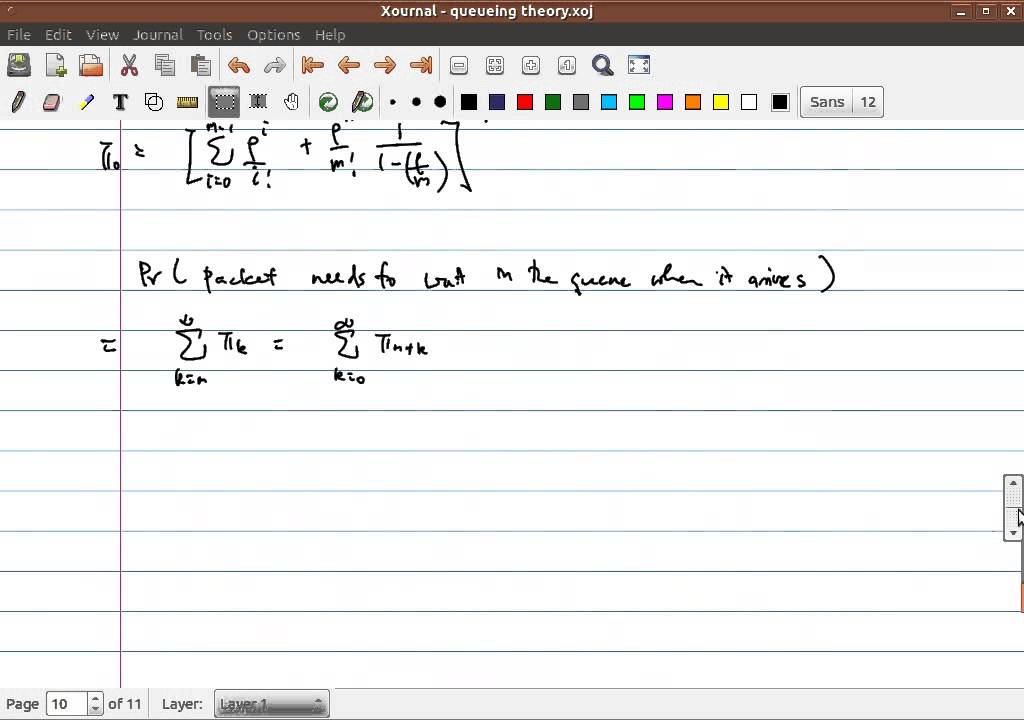 Xournal - queueing theory.xoj
File Edit View Journal Tools Options Help
Sans 12
π₀ = [ Σ_{i=0}^{m-1} ρ^i / i! + ρ^m / m! 1 / (1-(ρ/m)) ]
Pr ( packet needs to wait in the queue when it arrives )
= Σ_{k=m}^{∞} π_k = Σ_{k=0}^{∞} π_{m+k}
Page 10 of 11 Layer: Layer 1